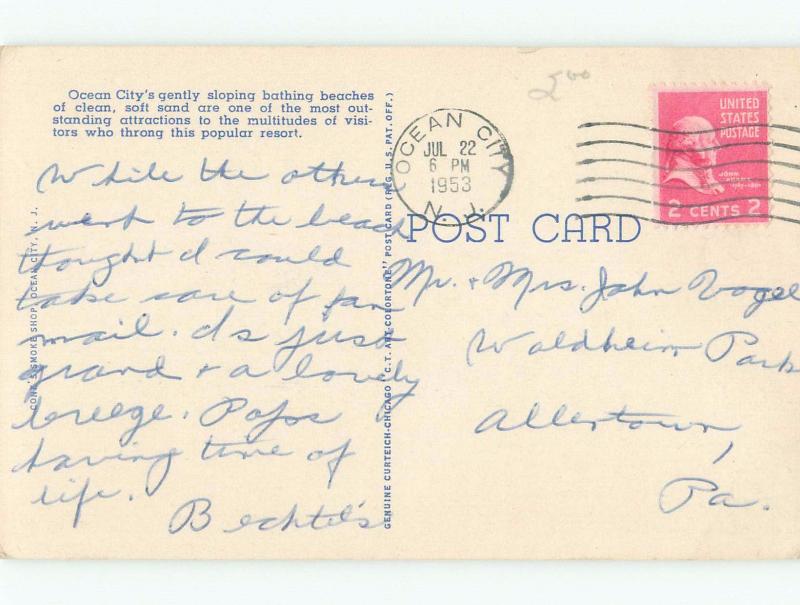 Ocean City's gently sloping bathing beaches
of clean, soft sand are one of the most out-
standing attractions to the multitudes of visi-
tors who throng this popular resort.
5.00
OCEAN CITY
JUL 22
6 PM
1953
N. J.
UNITED
STATES
POSTAGE
JOHN ADAMS
1797-1801
2 CENTS 2
POST CARD
While the others
went to the beach
thought I could
take care of fan
mail. Is just
grand + a lovely
breeze. Pops
having time of
life.
Bechtel's
Mr. + Mrs. John Vogel
Waldheim Park
Allentown,
Pa.
CONE'S SMOKE SHOP, OCEAN CITY, N. J.
GENUINE CURTEICH-CHICAGO "C.T. ART-COLORTONE" POST CARD (REG. U.S. PAT. OFF.)